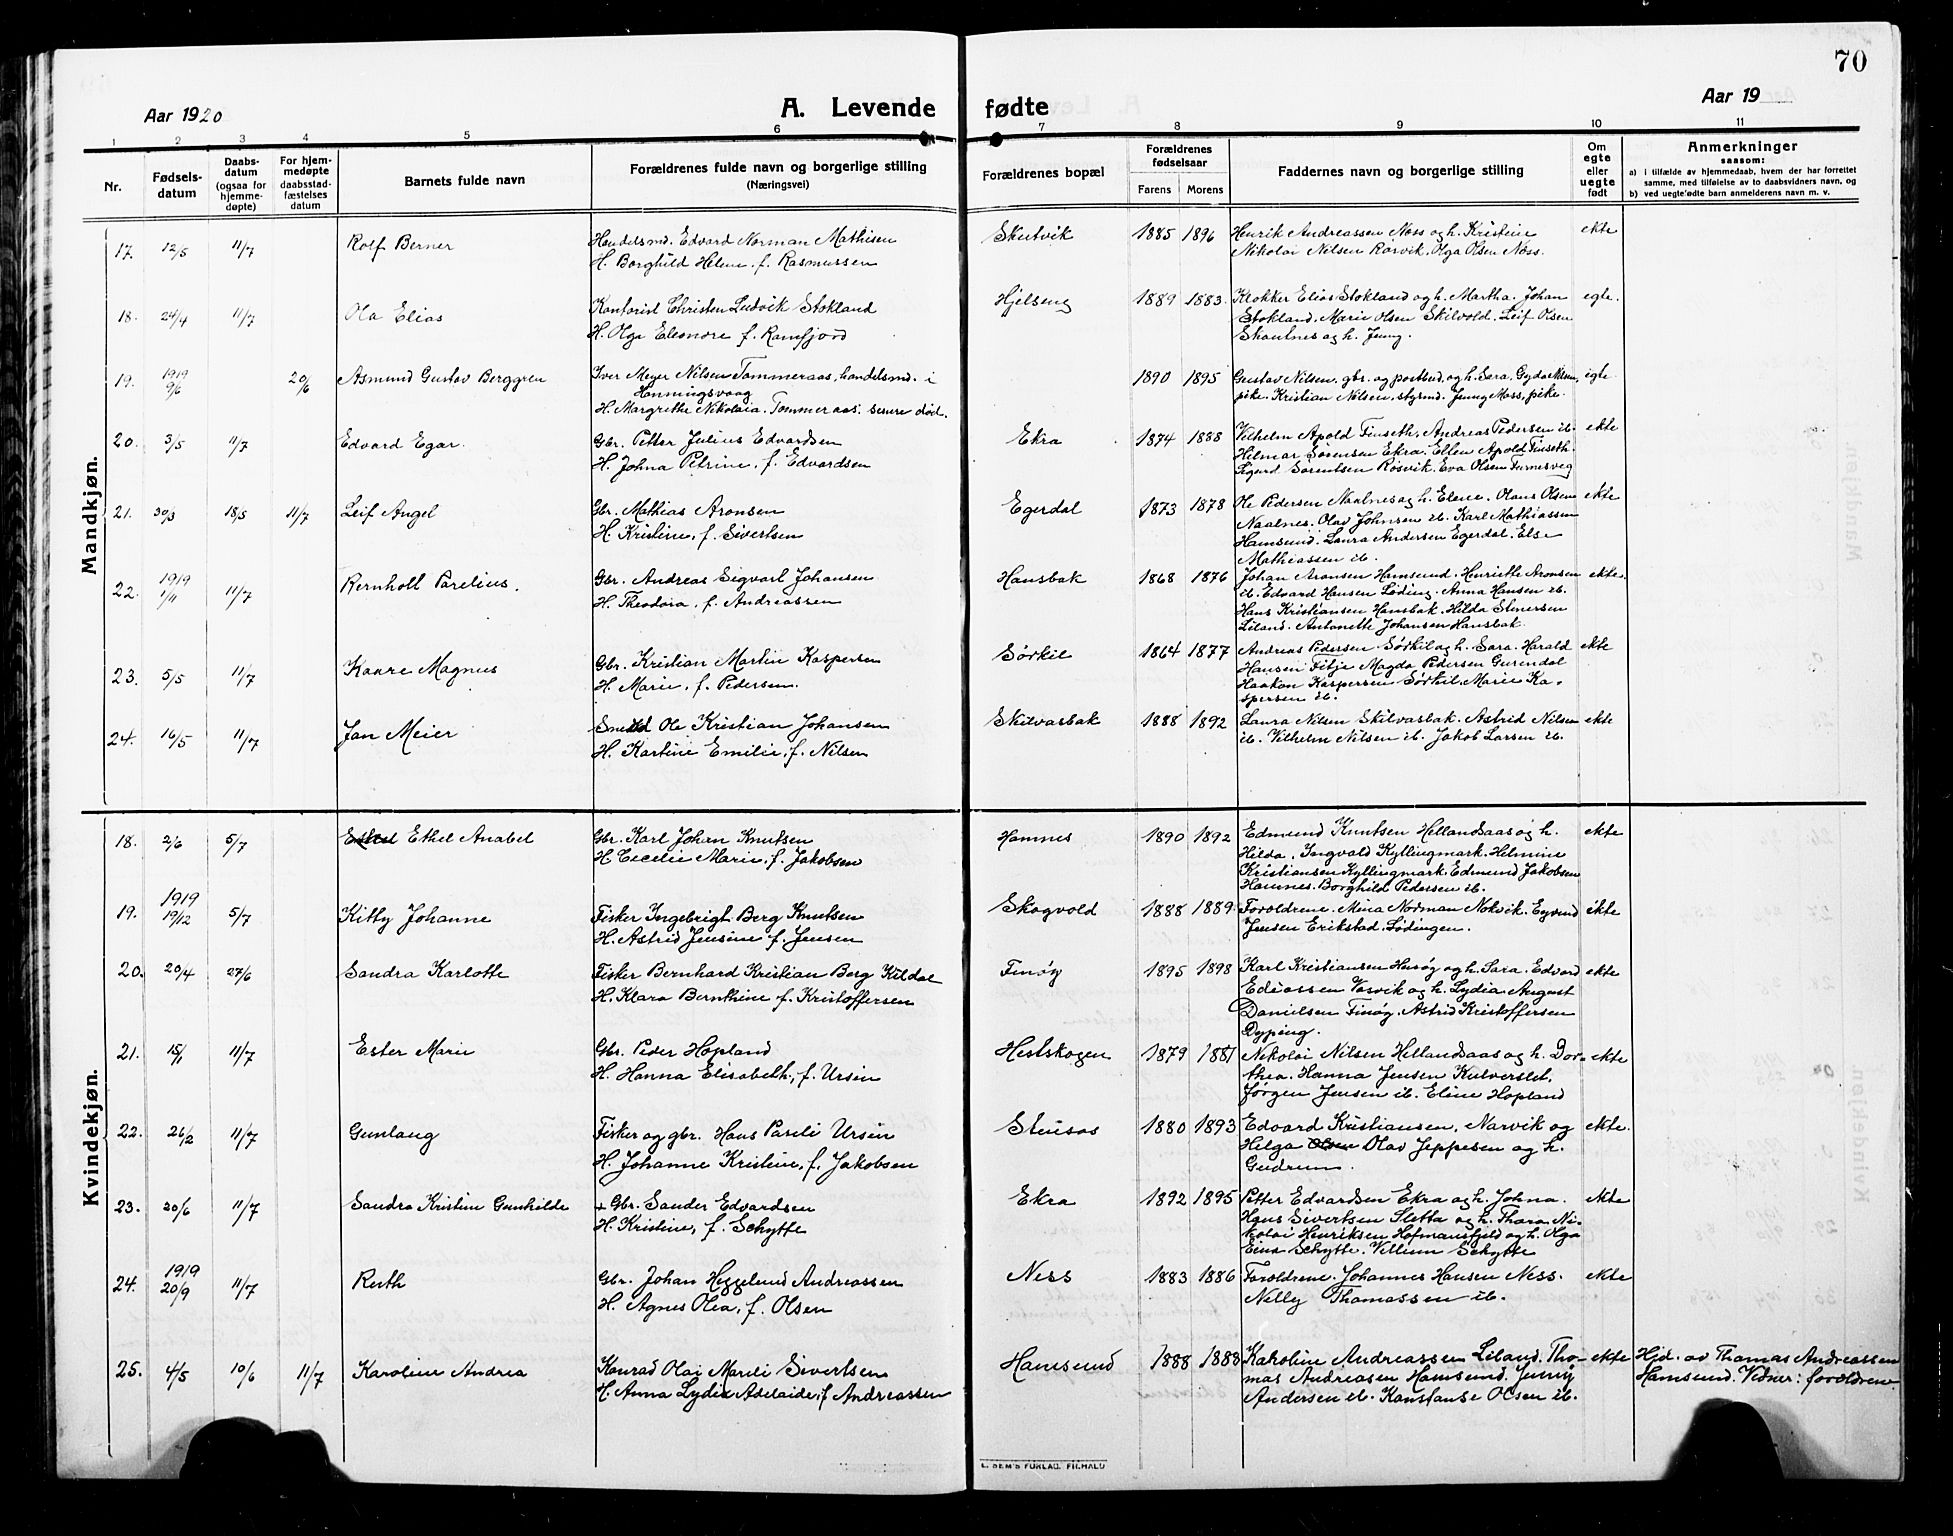 70
Aar 1920
A. Levende fødte
Aar 19
1 2 3 4 5 6 7 8 9 10 11
Nr.
Fødsels-
datum
Daabs-
datum
(ogsaa for
hjemme-
døpte)
For hjem-
medøpte
daabsstad-
fæstelses
datum
Barnets fulde navn
Forældrenes fulde navn og borgerlige stilling
(Næringsvei)
Forældrenes bopæl
Forældrenes
fødselsaar
Farens Morens
Faddernes navn og borgerlige stilling
Om
egte
eller
uegte
født
Anmerkninger
saasom:
a) i tilfælde av hjemmedaab, hvem der har forrettet
samme, med tilføielse av to daabsvidners navn, og
b) ved uegte fødte barn anmelderens navn m. v.
Mandkjøn.
17. 12/5 11/7 Rolf Berner
Handelsmd. Edvard Norman Mathisen
H. Borghild Helene f. Rasmussen
Skutvik 1885 1896
Henrik Andreassen Ness og h. Kristine
Nikolai Nilsen Rørvik. Olga Olsen Ness.
ekte
18. 24/4 11/7 Ola Elias
Kontorist Christen Ludvik Stokland
H. Olga Eleonore f. Ranfjord
Hjelseng 1889 1883.
Klokker Elias Stokland og h. Martha. Johan
Stokland. Marie Olsen Skilvold. Leif Olsen
Skoutnes og h. Jenny.
egte.
19. 1919 9/6 20/6 Asmund Gustav Berggren
Iver Meyer Nilsen Tommeraas, handelsmd. i
Honningsvaag
H. Margrethe Nikolaia. Tommeraas. senere død.
1890 1895
Gustav Nilsen, gbr. og postbud og h. Sara. Gyda Nilsen,
pike. Kristian Nilsen, styrmd. Jenny Moss, pike.
egte
20. 3/5 11/7 Edvard Egar.
Gbr. Petter Julius Edvardsen
H. Johna Petrine, f. Edvardsen
Ekra 1874 1888
Vilhelm Apold Finseth, Andreas Pedersen ib.
Hilmar Sørensen Ekra. Ellen Apold Finseth.
Sigurd Sørentsen Røsvik. Eva Olsen Furnesveg
ekte
21. 30/3 18/5 11/7 Leif Angel
Gbr. Mathias Aronsen
H. Kristine, f. Sivertsen
Egerdal 1873 1878
Ole Pedersen Naalnes og h. Elene. Olaus Olsen
Naalnes. Olav Johnsen ib. Karl Mathiassen
Hamsund. Laura Andersen Egerdal. Else
Mathiassen ib.
ekte
22. 1919 1/11 11/7 Bernholt Parelius.
Gbr. Andreas Sigvart Johansen
H. Theodora, f. Andreassen
Hansbak 1868 1876
Johan Aronsen Hamsund. Henriette Aronsen
ib. Edvard Hansen Løding. Anna Hansen ib.
Hans Kristiansen Hansbak. Hilda Stenersen
Liland. Antonette Johansen Hansbak.
ekte.
23. 5/5 11/7 Kaare Magnus
Gbr. Kristian Martin Kaspersen
H. Marie, f. Pedersen.
Sørkil 1864 1877
Andreas Pedersen Sørkil og h. Sara. Harald
Hansen Fitje Magda Pedersen Gurendal
Haakon Kaspersen Sørkil. Marie Ka-
spersen ib.
ekte
24. 16/5 11/7 Jan Meier
Smed Ole Kristian Johansen
H. Kartine Emilie, f. Nilsen
Skilvasbak 1888 1892
Laura Nilsen Skilvasbak. Astrid Nilsen
ib. Vilhelm Nilsen ib. Jakob Larsen ib.
ekte
Kvindekjøn.
18. 2/6 5/7 Ethel Anabel
Gbr. Karl Johan Knutsen
H. Cecelie Marie, f. Jakobsen
Hamnes 1890 1892
Edmund Knutsen Hellandsaas og h.
Hilda. Ingvald Kyllingmark. Helmine
Kristiansen Kyllingmark. Edmund Jakobsen
Hamnes. Borghild Pedersen ib.
ekte
19. 1919 19/12 5/7 Kitty Johanne
Fisker Ingebrigt Berg Knutsen
H. Astrid Jensine f. Jensen
Skogvold 1888 1889.
Foroldrene. Mina Norman Nokvik. Eyvind
Jensen Erikstad. Lødingen.
ekte
20. 20/4 27/6 Sandra Karlotte
Fisker Bernhard Kristian Borg Kildal
H. Klara Bernthine f. Kristoffersen
Finøy 1895 1898
Karl Kristiansen Husøy og h. Sara. Edvard
Ediassen Vasvik og h. Lydia. August
Danielsen Finøy. Astrid Kristoffersen
Dyping.
ekte
21. 15/1 11/7 Ester Marie
Gbr. Peder Hopland
H. Hanna Elisabeth, f. Ursin
Hestskogen 1879 1881
Nikolai Nilsen Hellandsaas og h. Dor-
thea. Hanna Jensen Kulverslet.
Jørgen Jensen ib. Eline Hopland
ekte
22. 26/2 11/7 Gunlaug
Fisker og gbr. Hans Pareli Ursin
H. Johanne Kristine, f. Jakobsen
Stensos 1880 1893
Edvard Kristiansen, Narvik og
Helga Olsen Olav Jeppesen og h.
Gudrun.
ekte.
23. 20/6 11/7 Sandra Kristine Gunhilde
+ Gbr. Sander Edvardsen
H. Kristine, f. Schytte
Ekra 1892 1895
Petter Edvardsen Ekra og h. Johna.
Hans Sivertsen Sletta og h. Thora. Ni-
kolai Henriksen Hofmansfjeld og h. Olga
Eina Schytte. Villum Schytte
ekte
24. 1919 20/9 11/7 Ruth
Gbr. Johan Heggelund Andreassen
H. Agnes Olea, f. Olsen
Ness 1883 1886
Foroldrene. Johannes Hansen Ness.
Nelly Thomassen ib.
ekte
25. 4/5 10/6 11/7 Karoline Andrea
Konrad Olai Mareli Sivertsen
H. Anna Lydia Adelaide, f. Andreassen
Hamsund 1888 1888
Karoline Andreassen Liland. Tho-
mas Andreasen Hamsund. Jenny
Andersen ib. Konstanse Olsen ib.
ekte
Hjd. av Thomas Andreassen
Hamsund. Vidner: foroldrene
E. SEM'S FORLAG. FR.HALD